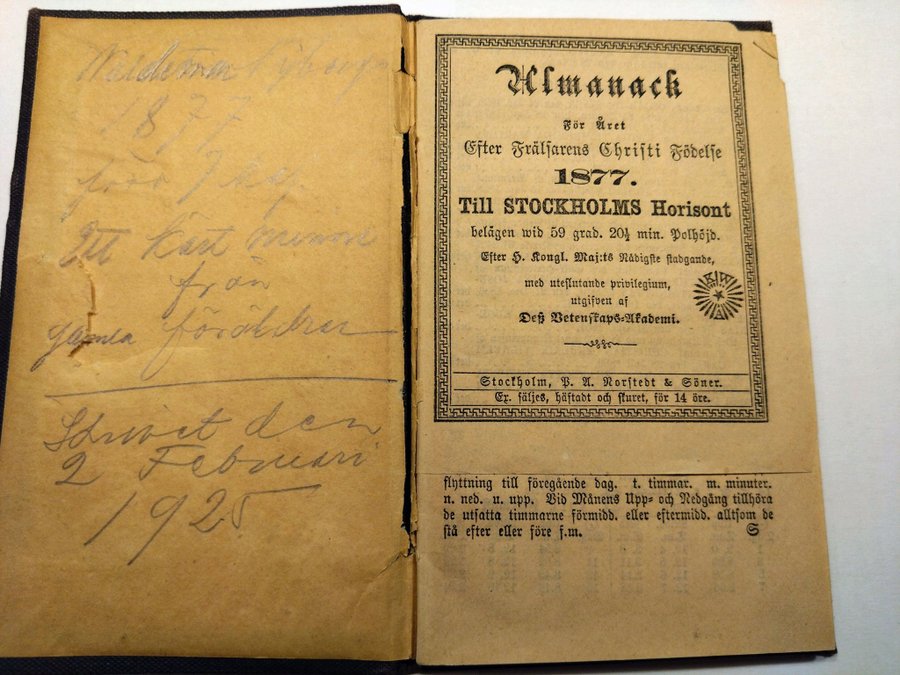 Waldemar
1877
Ett kärt minne
från
gamla föräldrar
Skrivet den
2 Februari
1925
Almanack
För Året
Efter Frälsarens Christi Födelse
1877.
Till STOCKHOLMS Horisont
belägen wid 59 grad. 20½ min. Polhöjd.
Efter H. Kongl. Maj:ts Nådigste stadgande,
med uteslutande privilegium,
utgifven af
Deß Vetenskaps-Akademi.
Stockholm, P. A. Norstedt & Söner.
Ex. säljes, häftadt och skuret, för 14 öre.
flyttning till föregående dag. t. timmar. m. minuter.
n. ned. u. upp. Vid Månens Upp- och Nedgång tillhöra
de utsatta timmarne förmidd. eller eftermidd. alltsom de
stå efter eller före f.m. S